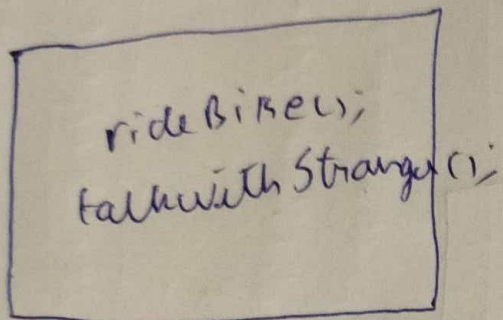 rideBike();
talkwithStranger();